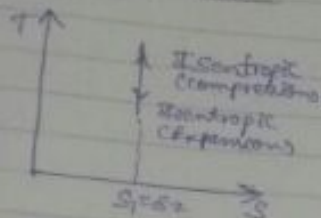 T
Isentropic
(compression)
Isentropic
(Expansion)
S₁=S₂
S